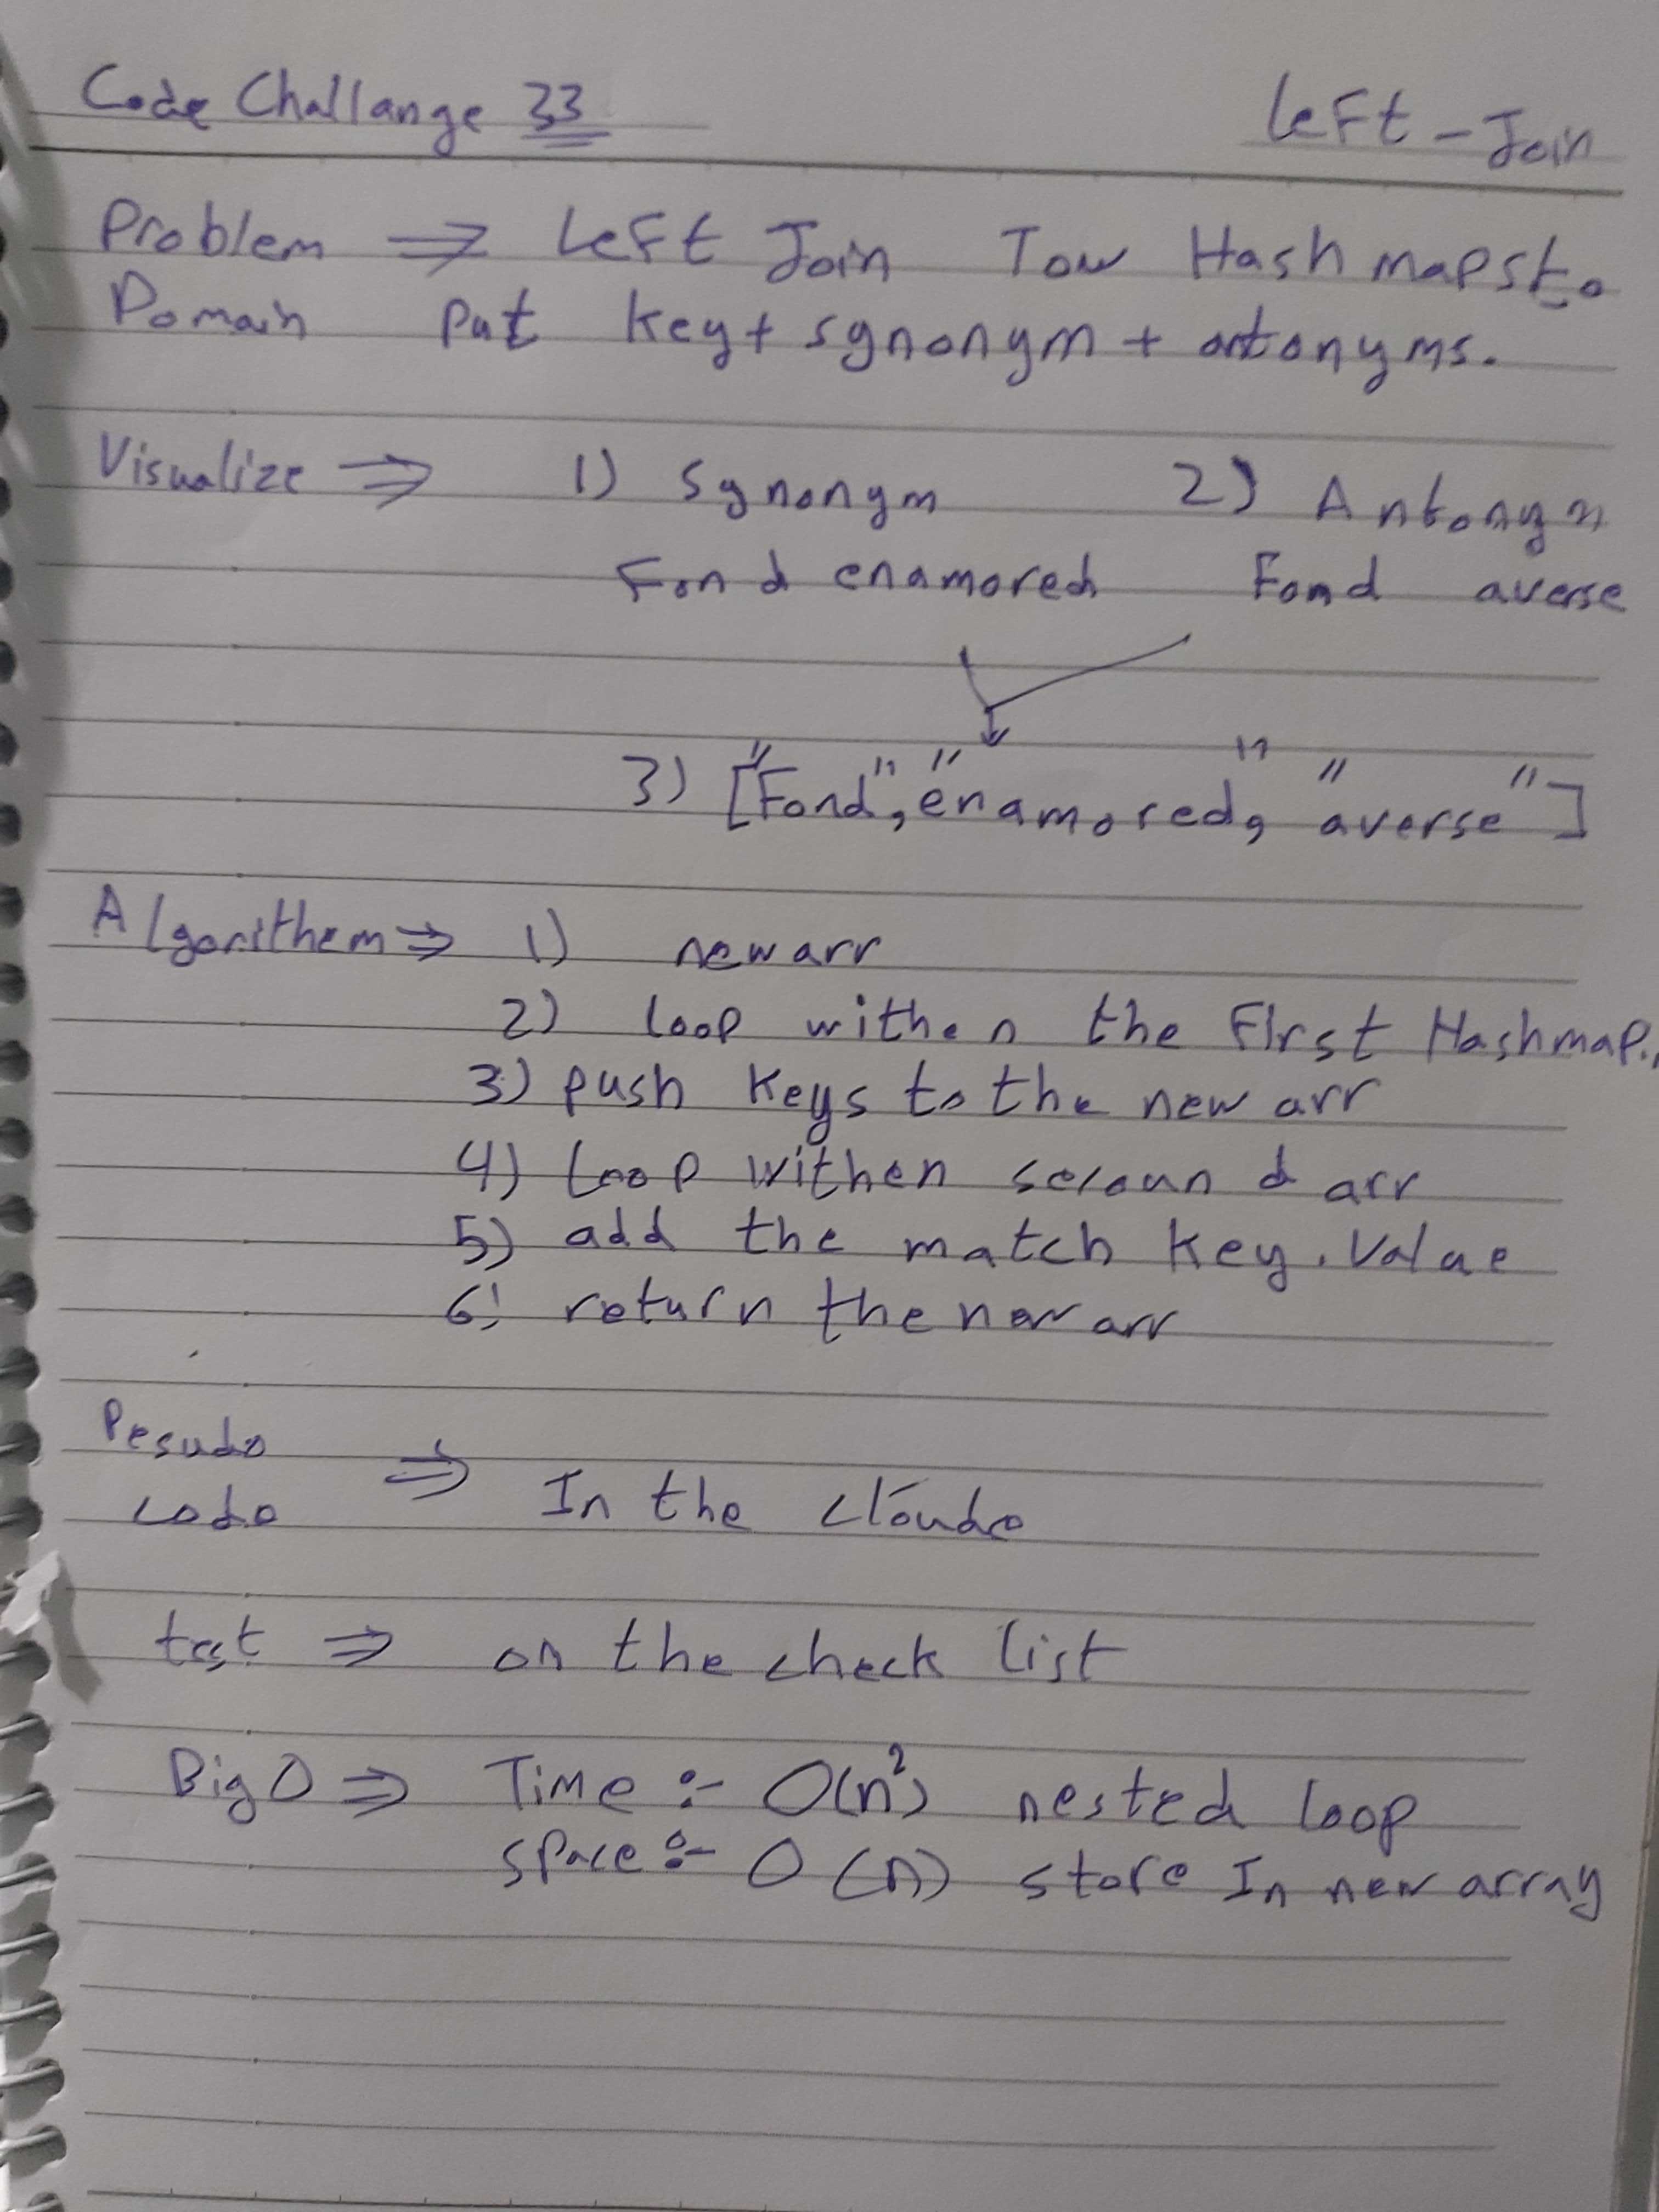 Code Challange 33 Left-Join
Problem ⇒ Left Join Tow Hash maps to
Domain put key + synonym + antonyms.
Visualize ⇒ 1) Synonym 2) Antonym
Fond enamored Fond averse
3) ["Fond", "enamored", "averse"]
Algorithem ⇒ 1) new arr
2) loop withen the First Hashmap.
3) push keys to the new arr
4) Loop withen secound arr
5) add the match key. Value
6) return the new arr
Pesudo
code ⇒ In the cloude
test ⇒ on the check list
Big O ⇒ Time :- O(n²) nested loop
space :- O(n) store In new array